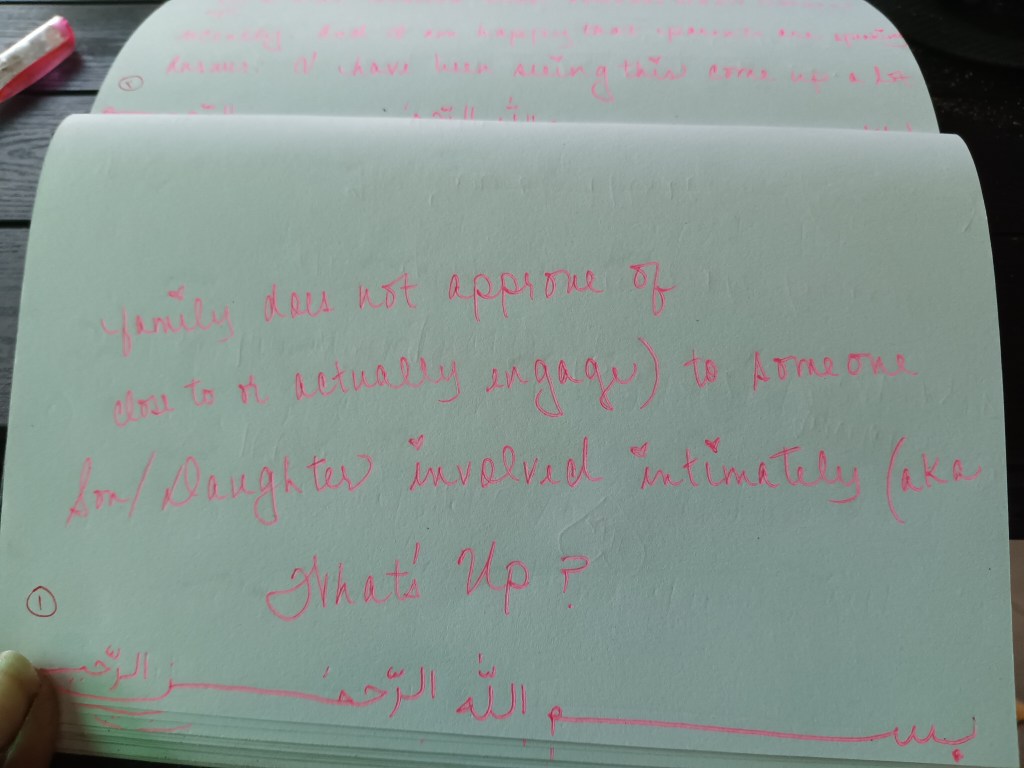 happy that parents are
answer. I have been seeing this come up a lot
②
family does not approve of
close to or actually engage) to someone
Son/Daughter involved intimately (aka
What's Up?
①
بسم اللّه الرّحمن الرّحيـ